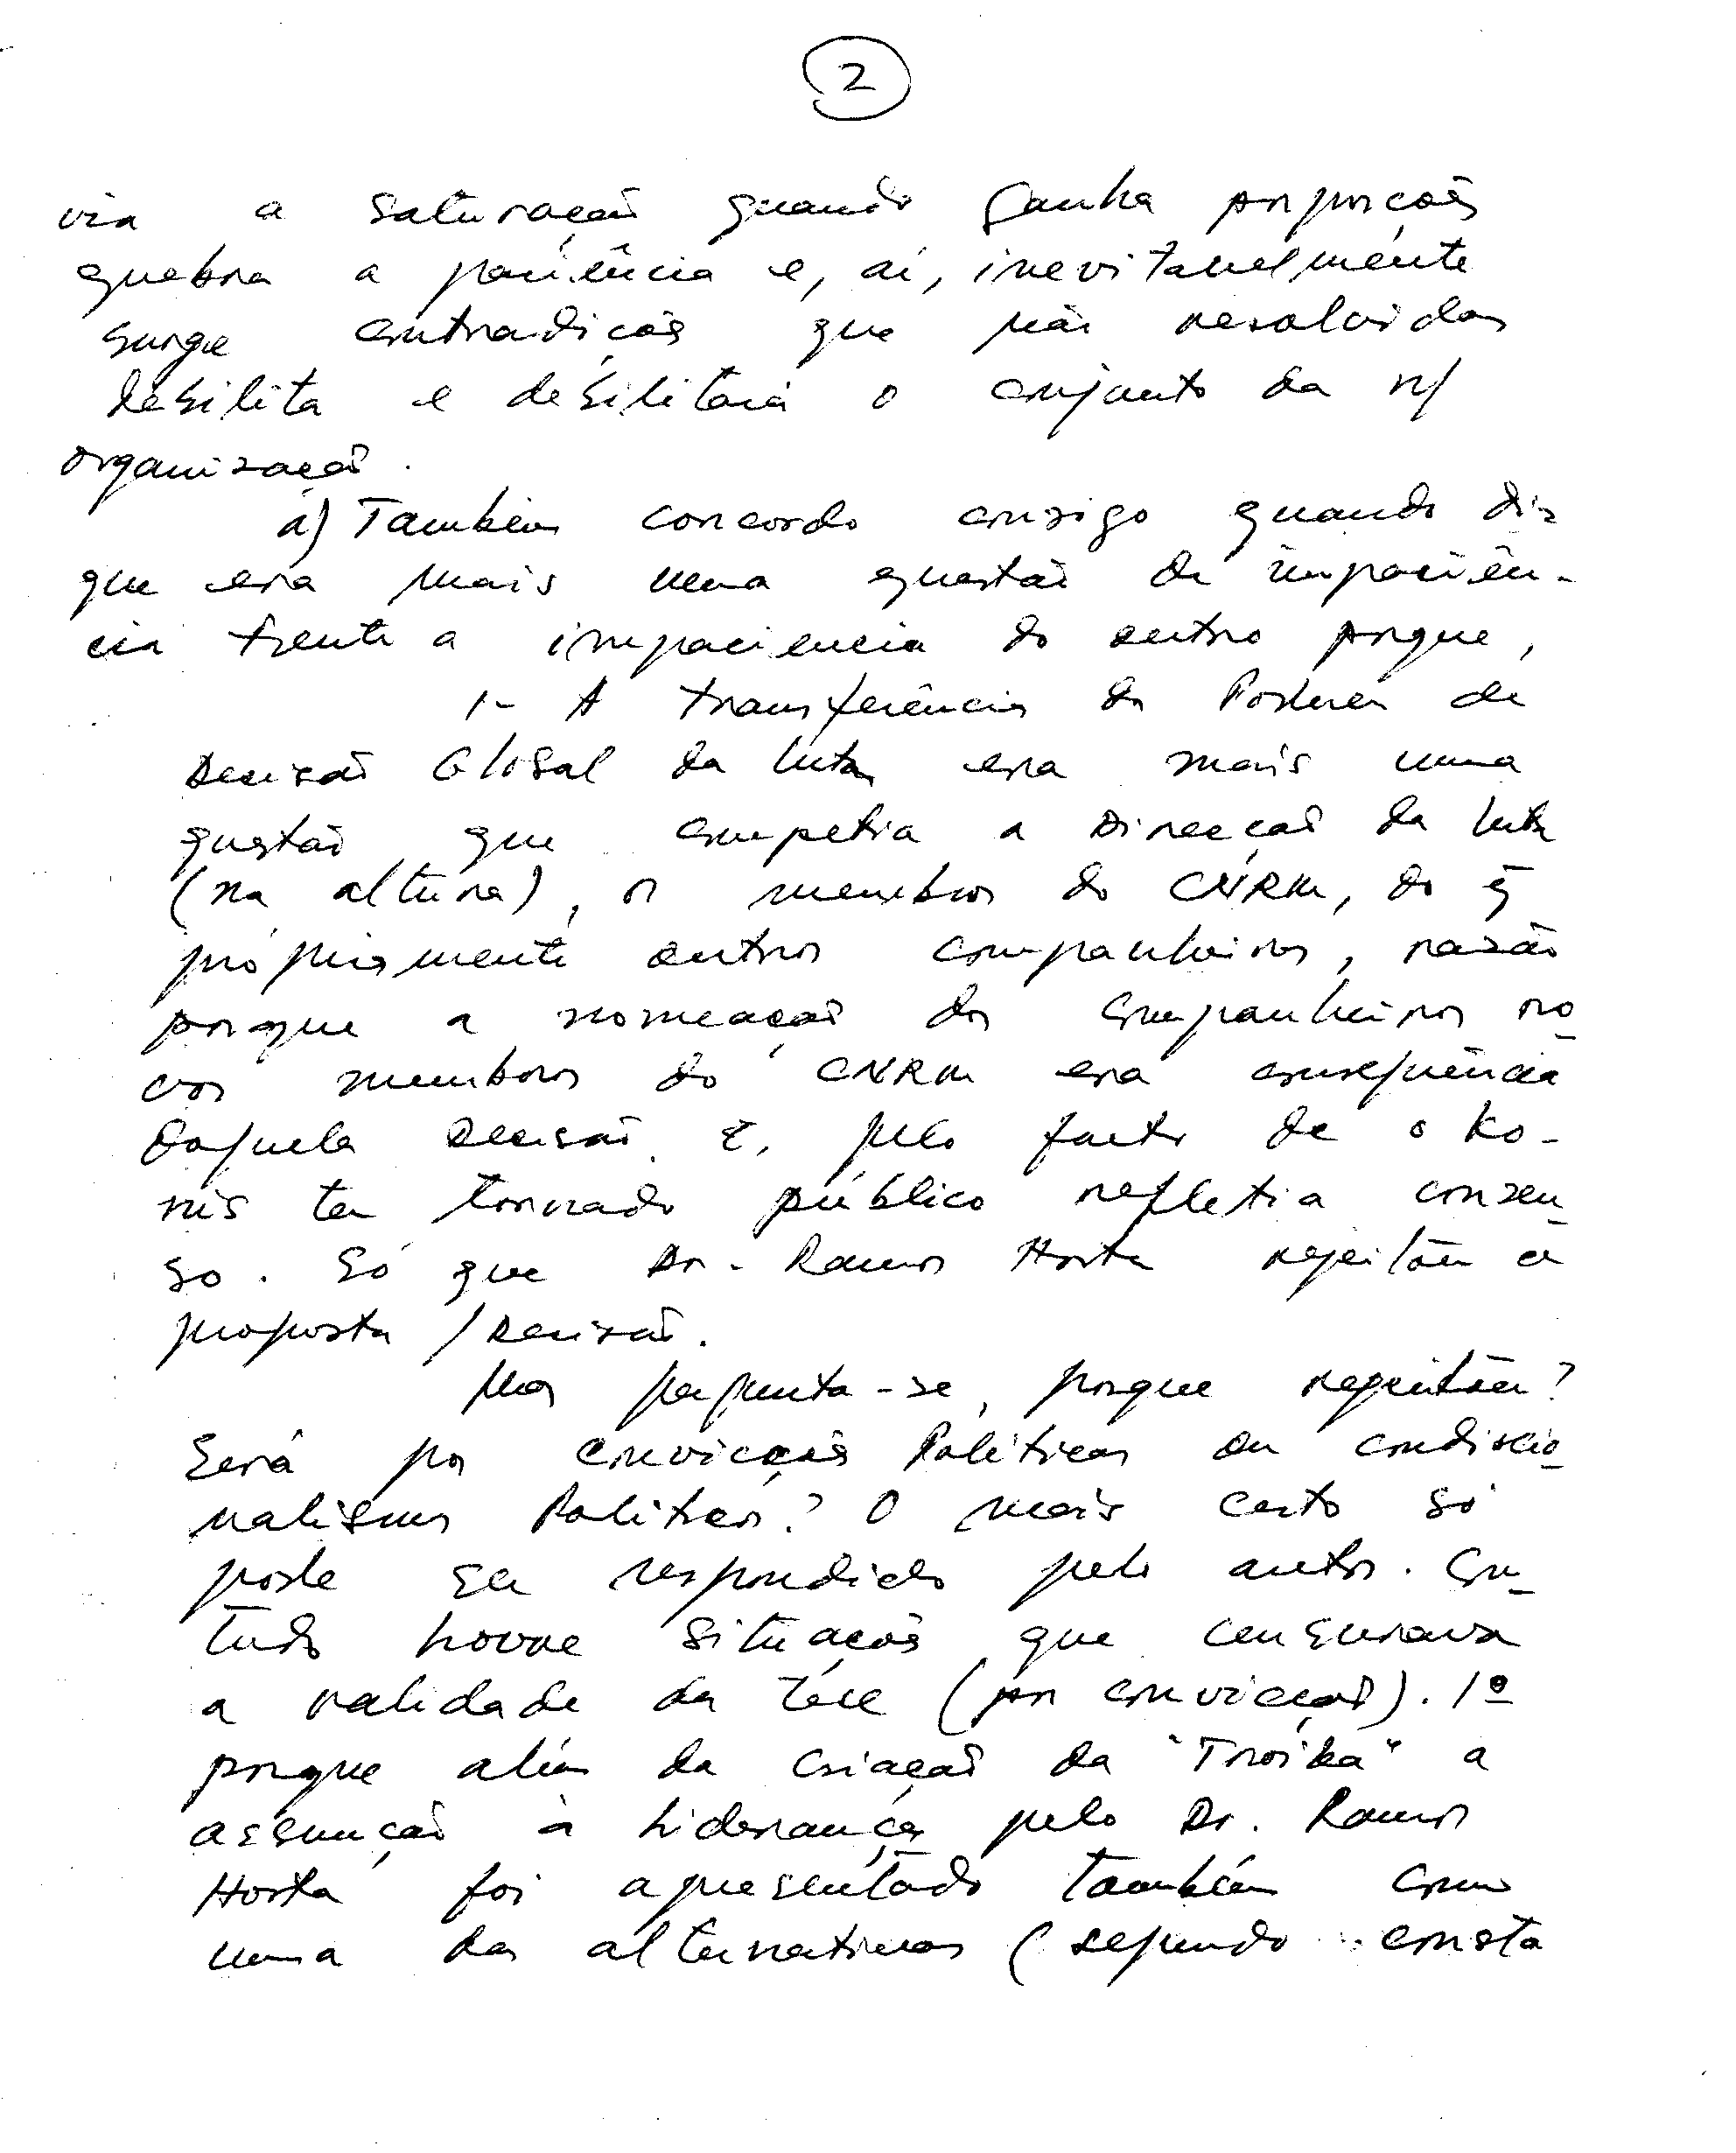 2
via a saturação quando ganha proporções
quebra a paciência e, aí, inevitavelmente
surge contradições que não resolvidas
debilita e debilitará o conjunto da n/
organização.
a) Também concordo consigo quando diz
que era mais uma questão de impaciên-
cia frente a impaciencia do outro porque,
1- A transferência do Poderes de
Decisão Global da luta era mais uma
questão que competia a Direcção da luta
(na altura), os membros do CNRM, do q̃
própriamente outros companheiros, razão
porque a nomeação dos companheiros no-
vos membros do CNRM era consequência
daquela Decisão. E, pelo facto de o Ko-
nis ter tornado público refletia consen-
so. Só que Dr. Ramos Horta rejeitou a
proposta / Decisão.
Mas pergunta-se, porque rejeitou?
Será por convicções Políticas ou condicio-
nalismos Politicos? O mais certo só
pode ser respondido pelo autor. Con-
tudo houve situações que censurava
a validade da tése (por convicção). 1º
porque além da criação da "Troika" a
assunção à liderança pelo Dr. Ramos
Horta foi apresentado também como
uma das alternativas (segundo consta